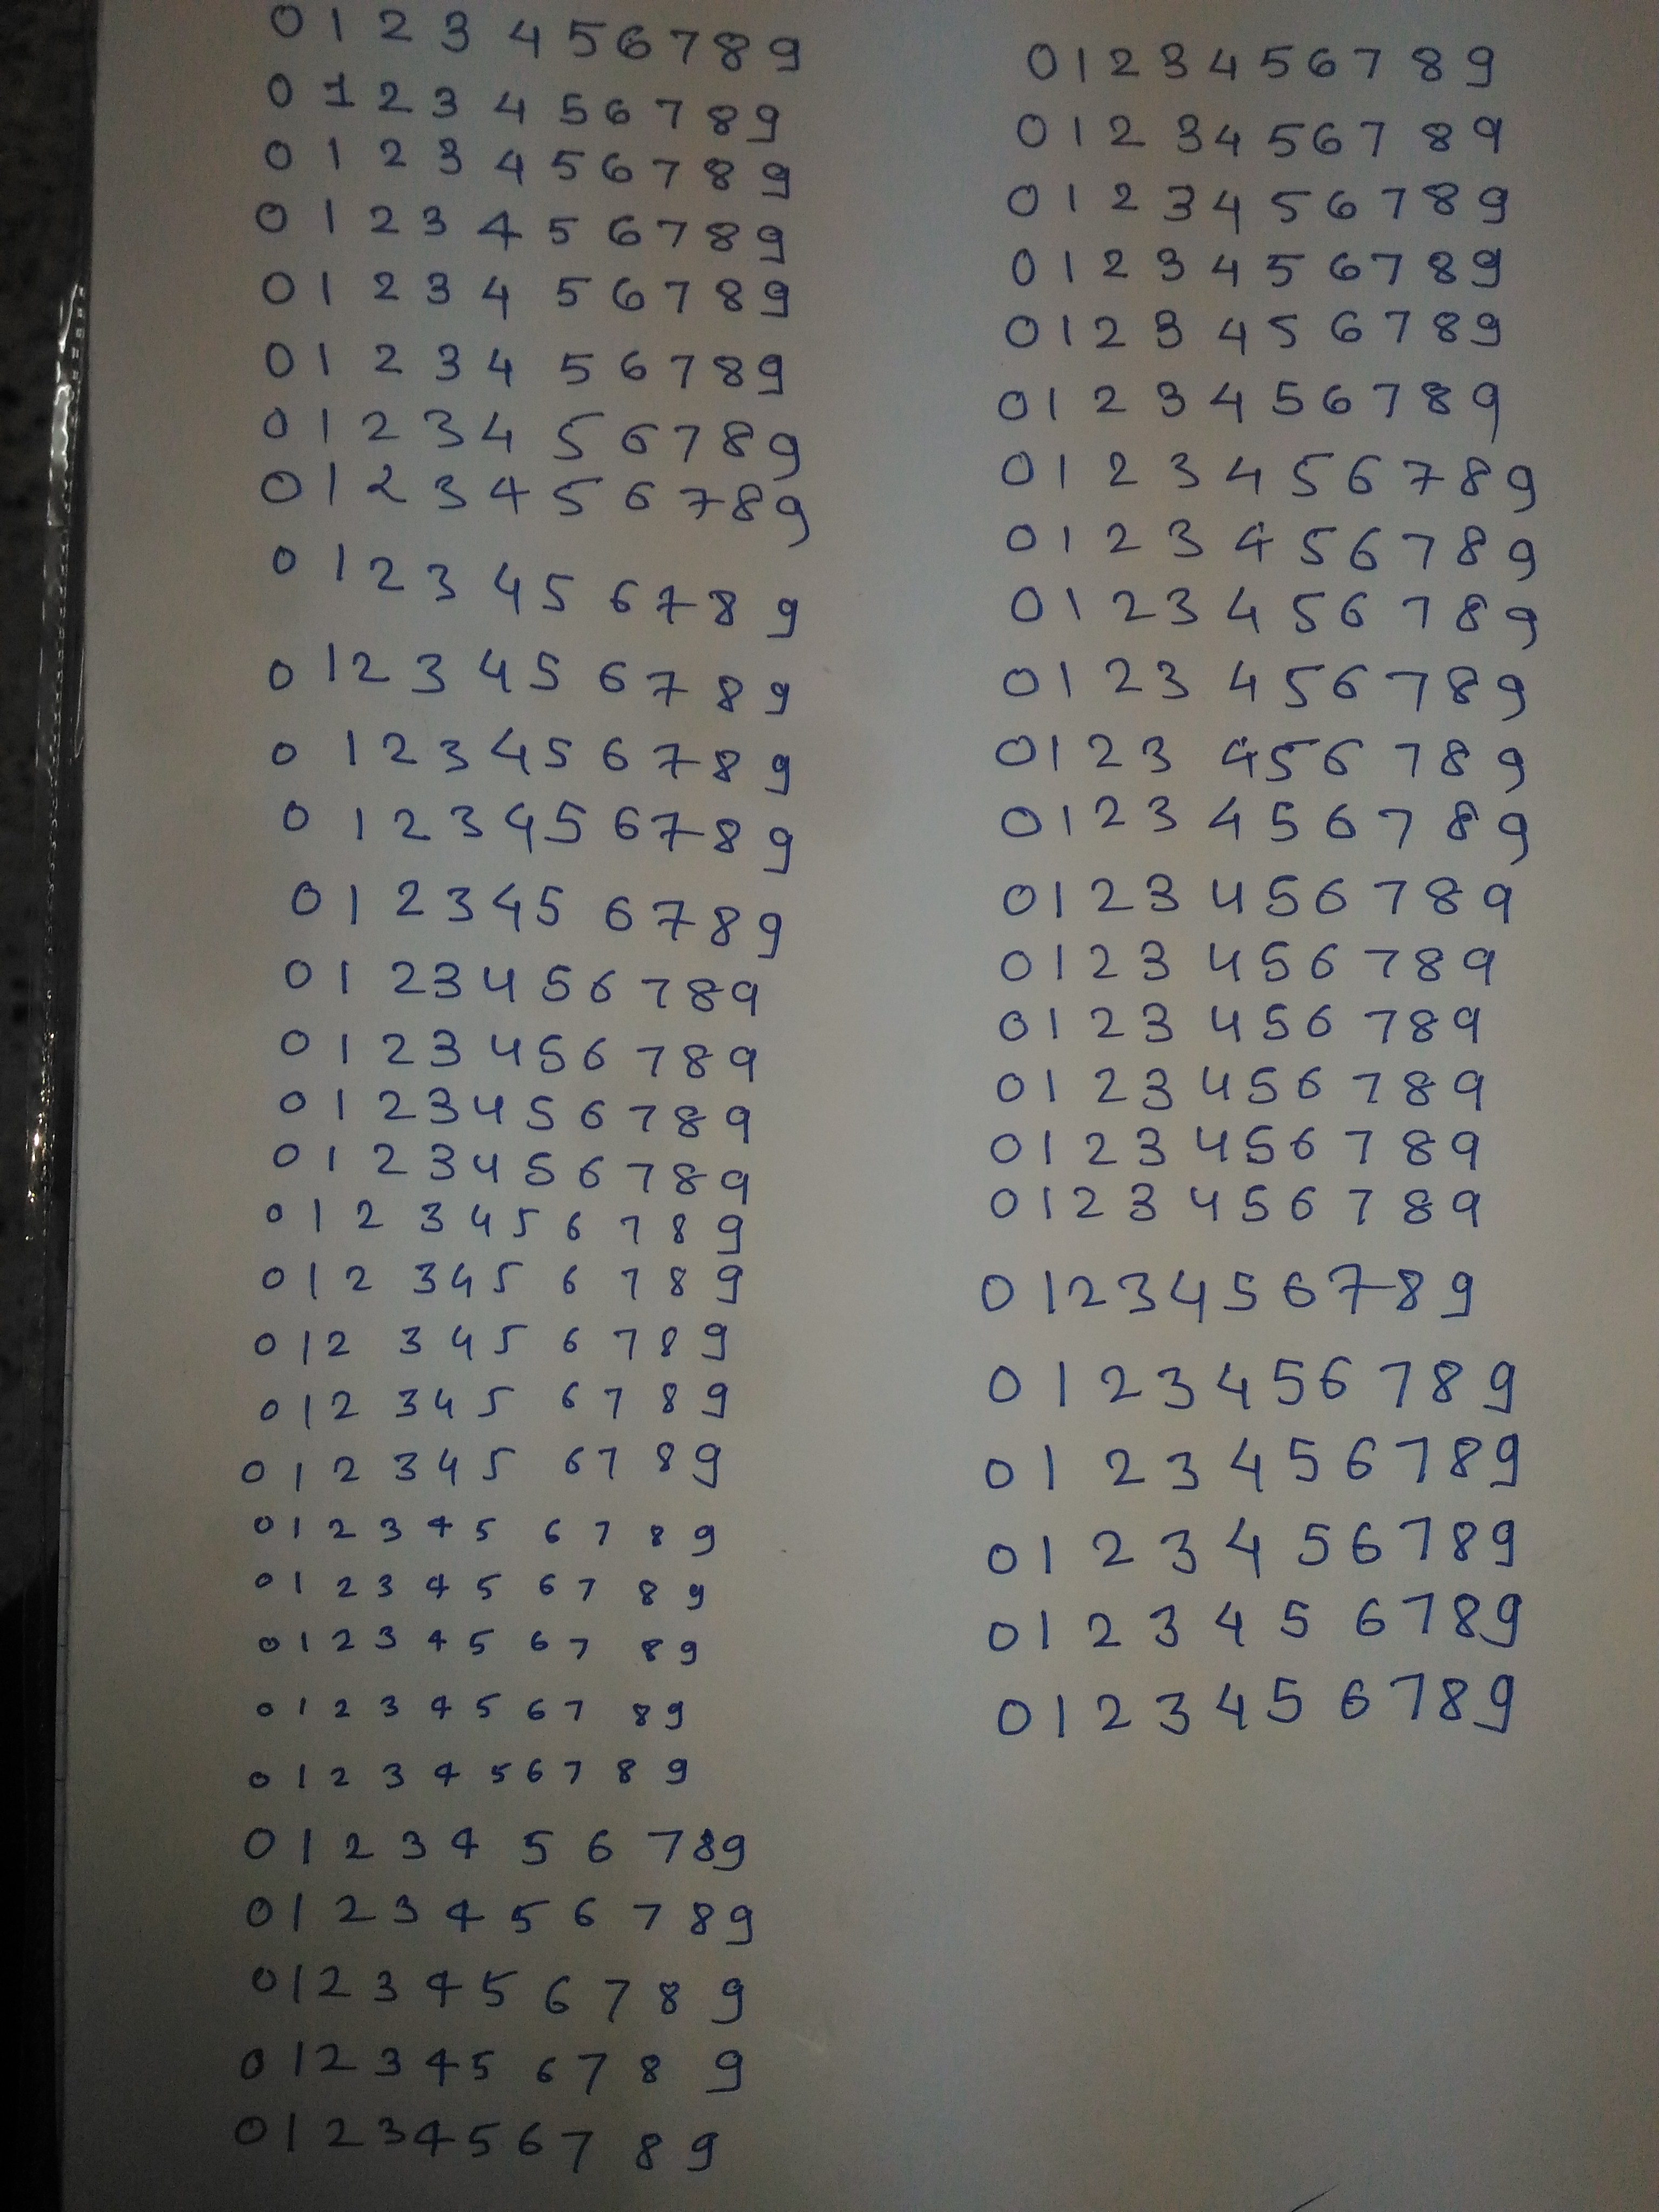 0 1 2 3 4 5 6 7 8 9
0 1 2 3 4 5 6 7 8 9
0 1 2 3 4 5 6 7 8 9
0 1 2 3 4 5 6 7 8 9
0 1 2 3 4 5 6 7 8 9
0 1 2 3 4 5 6 7 8 9
0 1 2 3 4 5 6 7 8 9
0 1 2 3 4 5 6 7 8 9
0 1 2 3 4 5 6 7 8 9
0 1 2 3 4 5 6 7 8 9
0 1 2 3 4 5 6 7 8 9
0 1 2 3 4 5 6 7 8 9
0 1 2 3 4 5 6 7 8 9
0 1 2 3 4 5 6 7 8 9
0 1 2 3 4 5 6 7 8 9
0 1 2 3 4 5 6 7 8 9
0 1 2 3 4 5 6 7 8 9
0 1 2 3 4 5 6 7 8 9
0 1 2 3 4 5 6 7 8 9
0 1 2 3 4 5 6 7 8 9
0 1 2 3 4 5 6 7 8 9
0 1 2 3 4 5 6 7 8 9
0 1 2 3 4 5 6 7 8 9
0 1 2 3 4 5 6 7 8 9
0 1 2 3 4 5 6 7 8 9
0 1 2 3 4 5 6 7 8 9
0 1 2 3 4 5 6 7 8 9
0 1 2 3 4 5 6 7 8 9
0 1 2 3 4 5 6 7 8 9
0 1 2 3 4 5 6 7 8 9
0 1 2 3 4 5 6 7 8 9
0 1 2 3 4 5 6 7 8 9
0 1 2 3 4 5 6 7 8 9
0 1 2 3 4 5 6 7 8 9
0 1 2 3 4 5 6 7 8 9
0 1 2 3 4 5 6 7 8 9
0 1 2 3 4 5 6 7 8 9
0 1 2 3 4 5 6 7 8 9
0 1 2 3 4 5 6 7 8 9
0 1 2 3 4 5 6 7 8 9
0 1 2 3 4 5 6 7 8 9
0 1 2 3 4 5 6 7 8 9
0 1 2 3 4 5 6 7 8 9
0 1 2 3 4 5 6 7 8 9
0 1 2 3 4 5 6 7 8 9
0 1 2 3 4 5 6 7 8 9
0 1 2 3 4 5 6 7 8 9
0 1 2 3 4 5 6 7 8 9
0 1 2 3 4 5 6 7 8 9
0 1 2 3 4 5 6 7 8 9
0 1 2 3 4 5 6 7 8 9
0 1 2 3 4 5 6 7 8 9
0 1 2 3 4 5 6 7 8 9
0 1 2 3 4 5 6 7 8 9
0 1 2 3 4 5 6 7 8 9
0 1 2 3 4 5 6 7 8 9